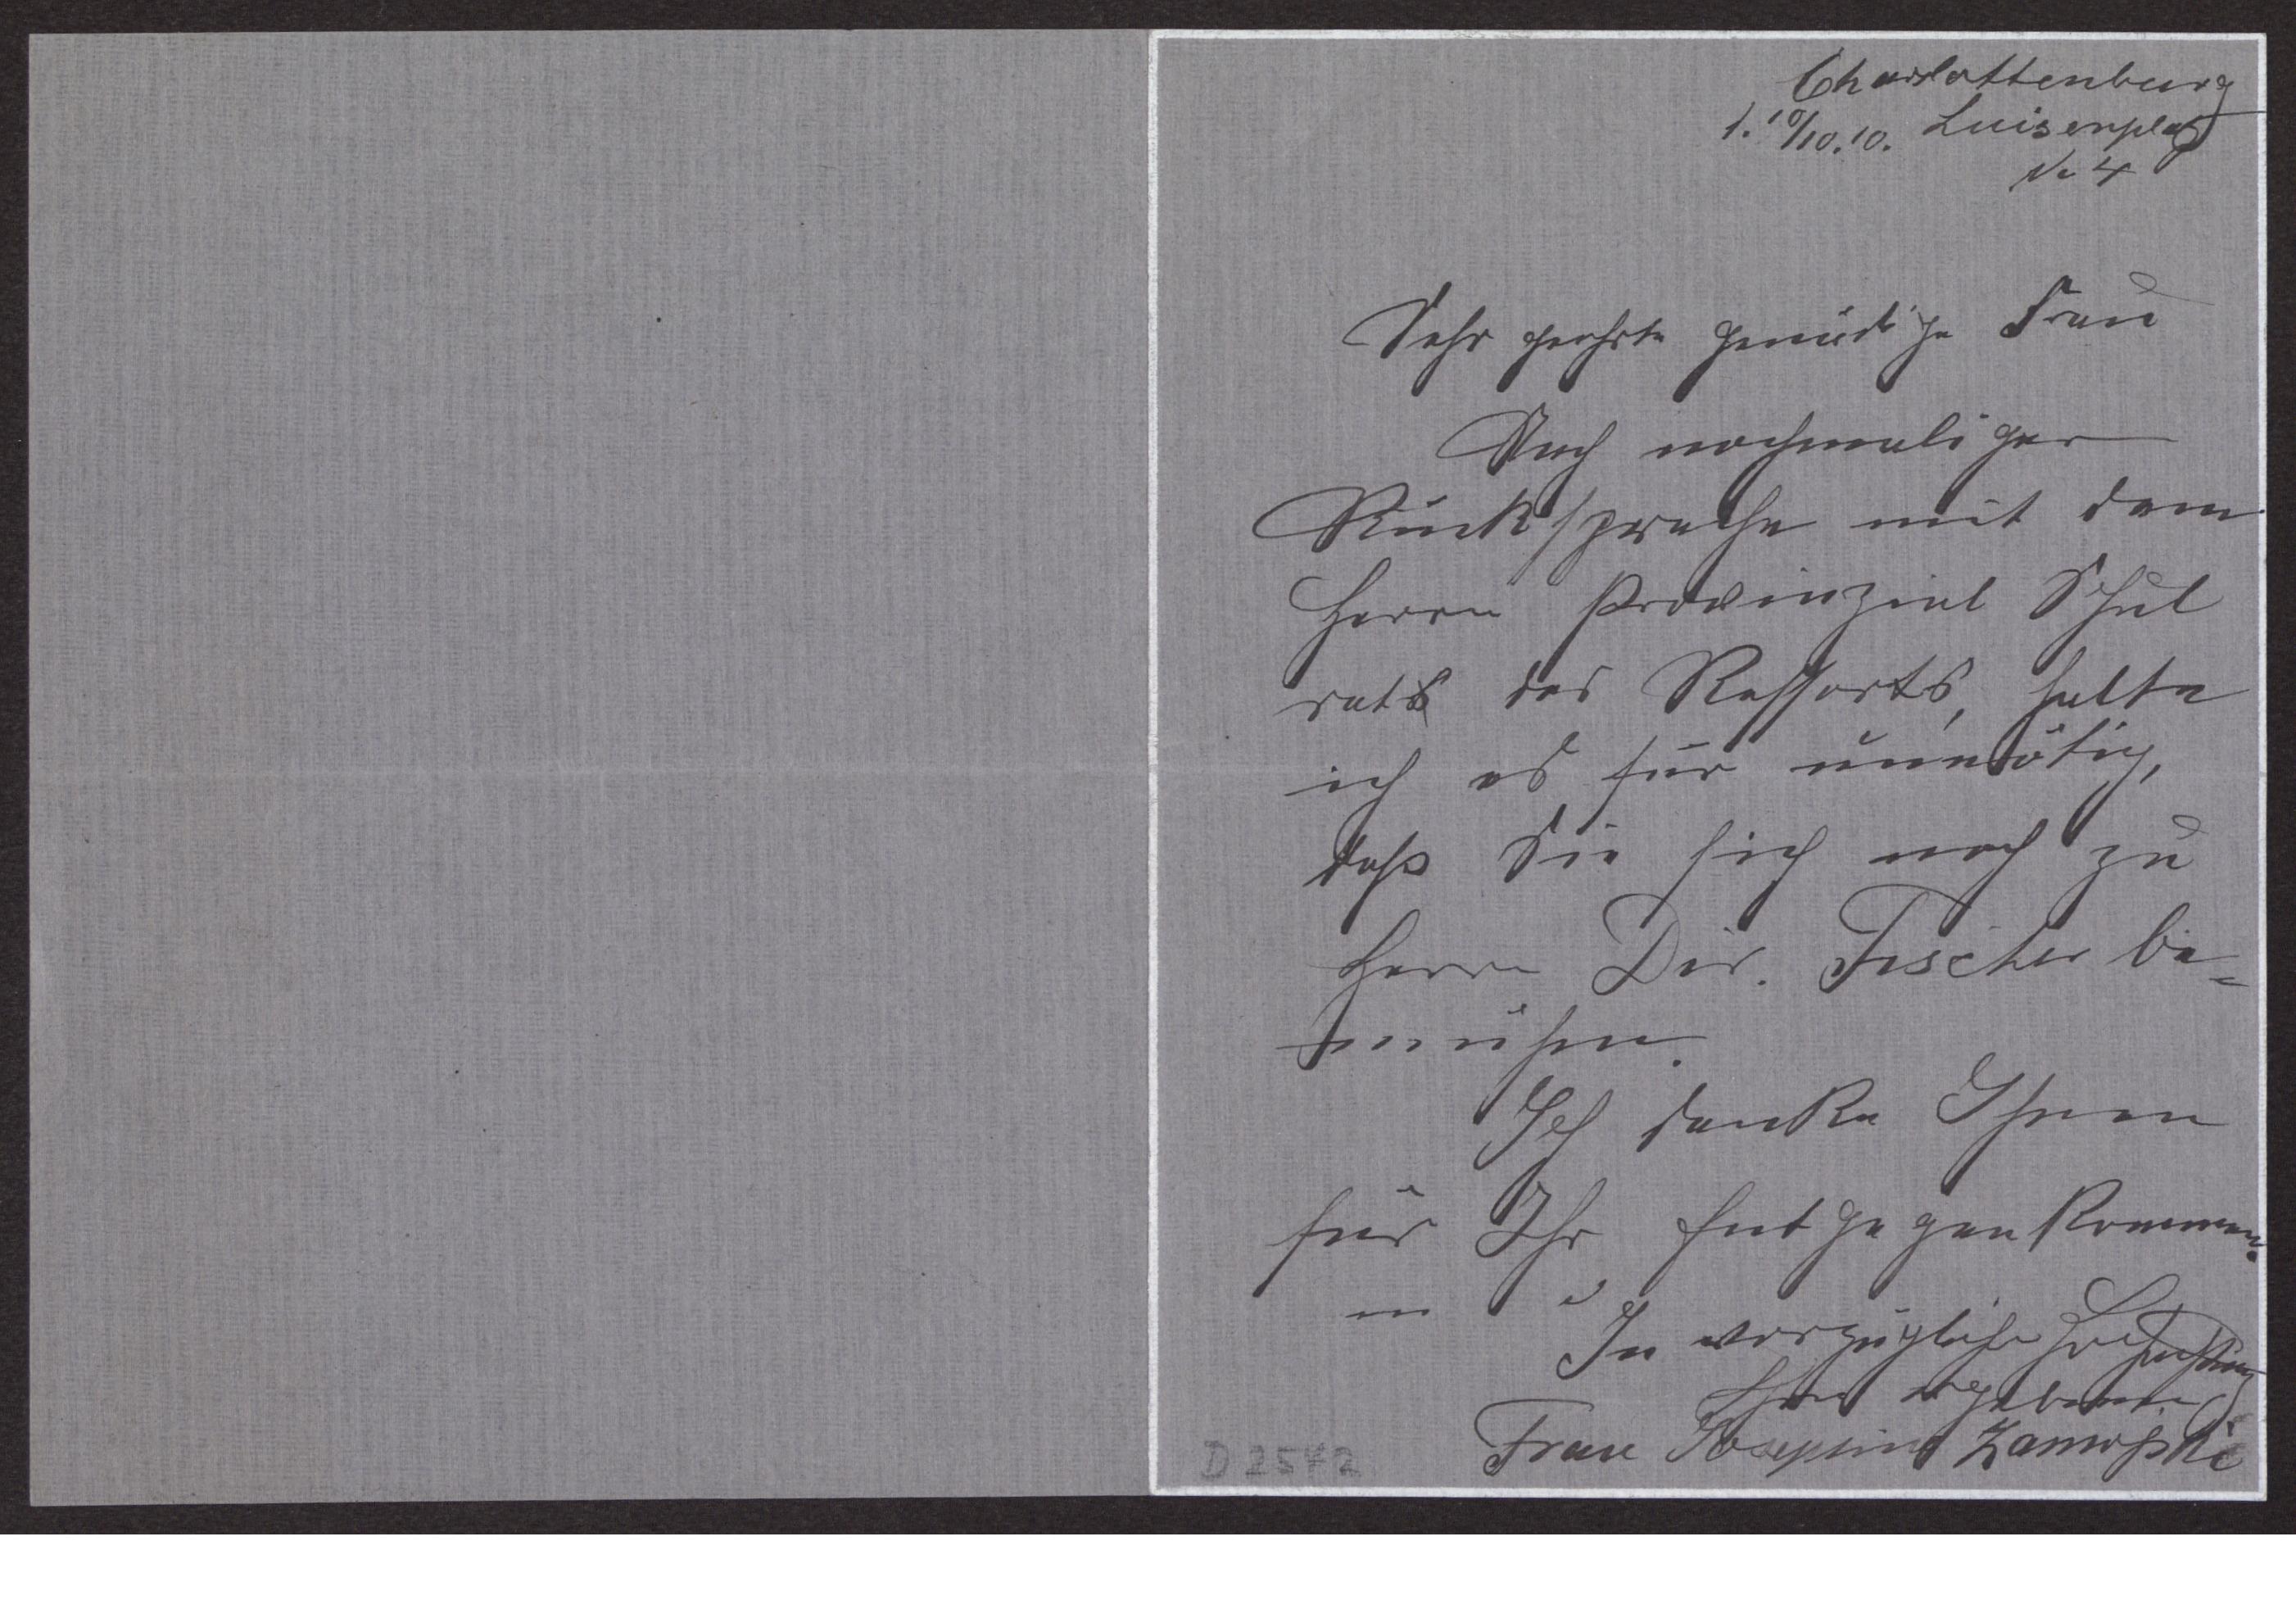 Charlottenburg
1. 10/10.10. Luisenplatz
No 4
Sehr geehrte gnädige Frau
Nach nochmaliger
Rücksprache mit dem
Herrn Provinzial Schul
rats des Ressorts, halte
ich es für unnötig,
daß Sie sich noch zu
Herrn Dir. Fischer be=
mühen.
Ich danke Ihnen
für Ihr Entgegenkommen.
In vorzüglicher Hochachtung
Ihre ergebene
Frau Josephine Zamojski
D 2542